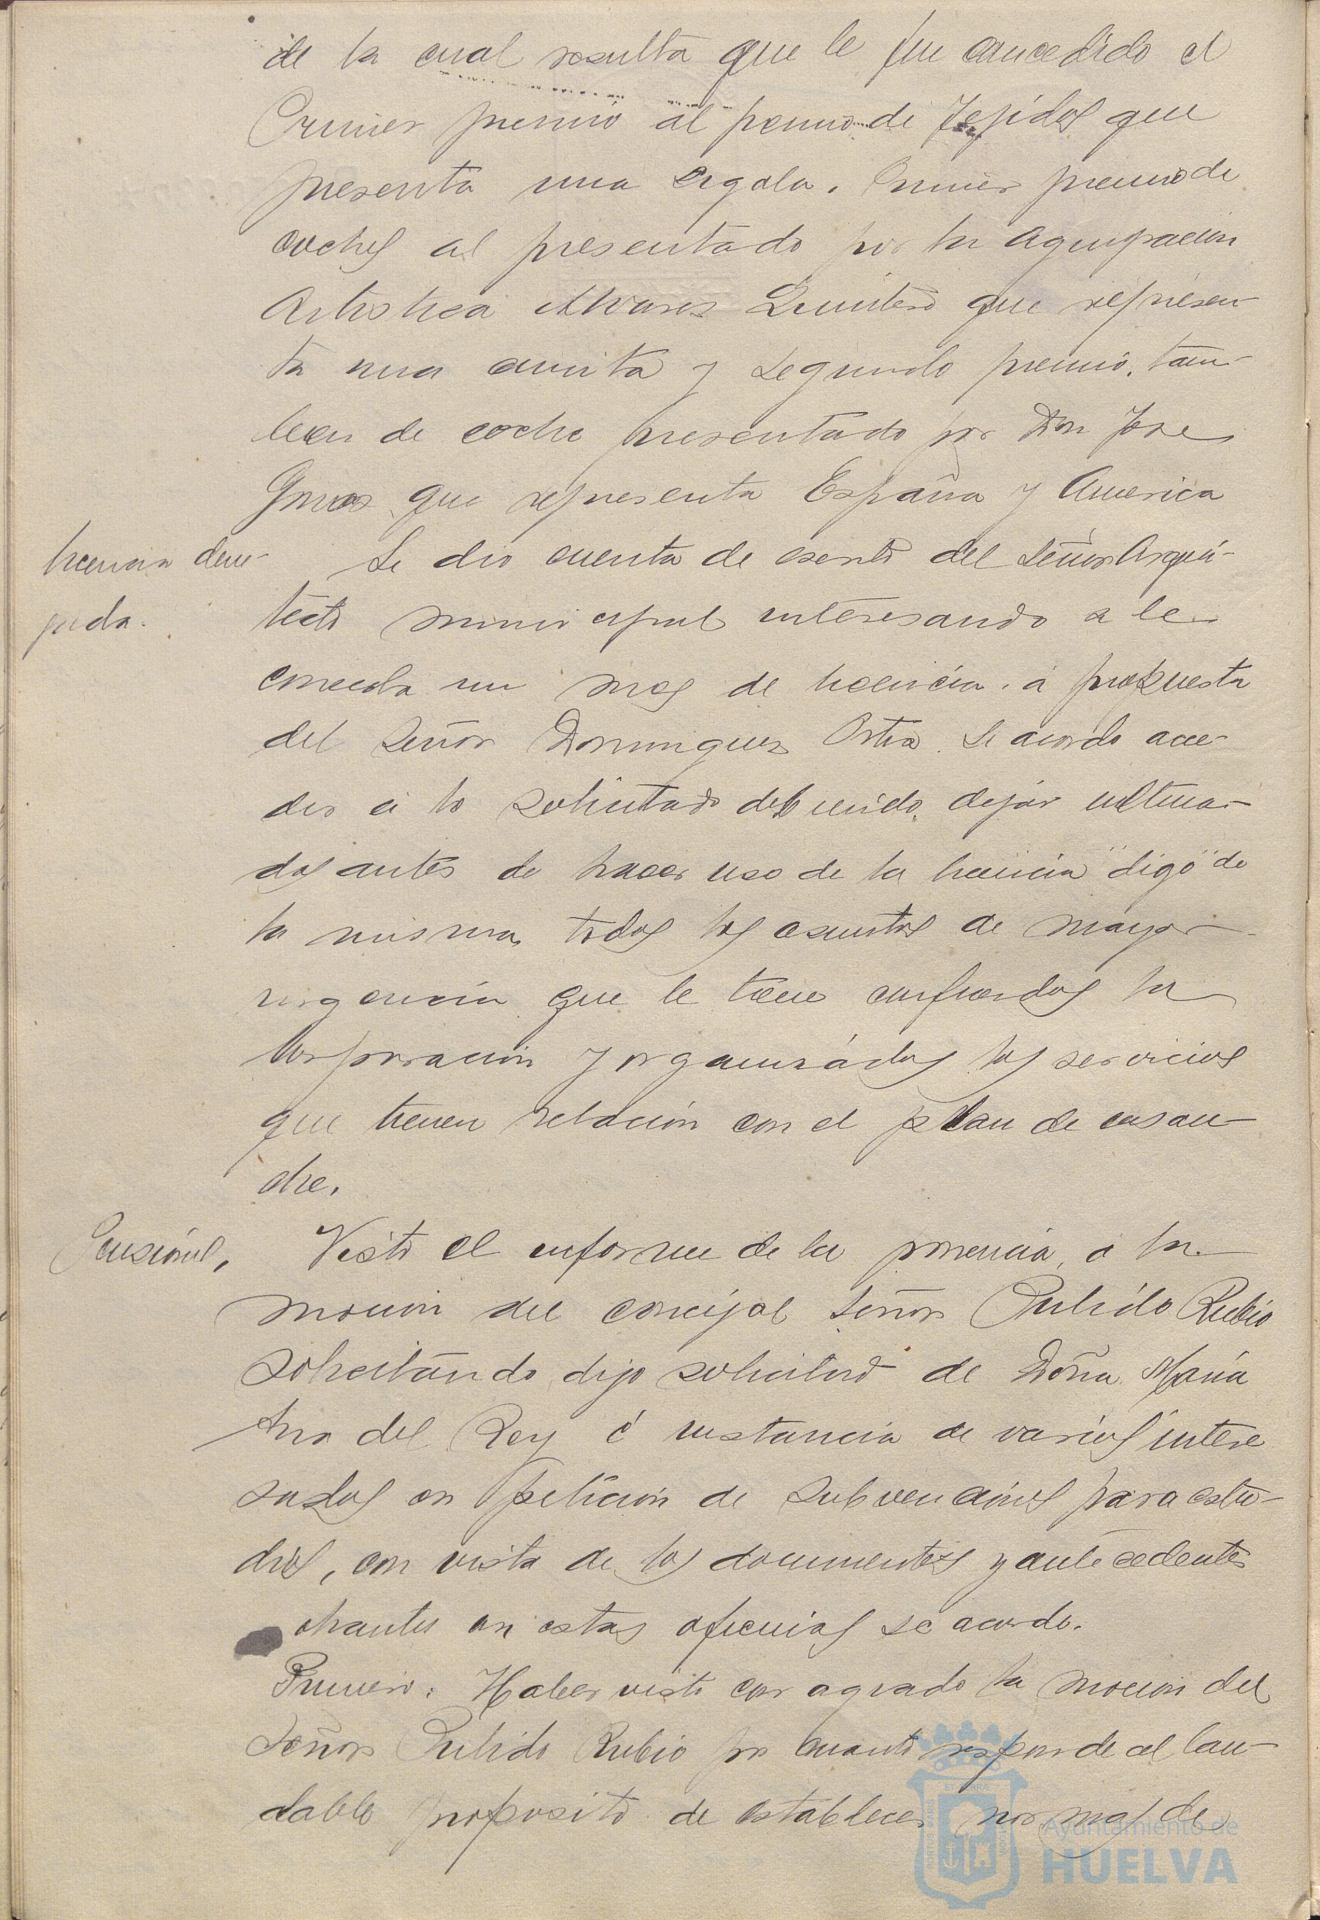 de la cual resulta que le fue concedido el
Primer premio al permio de Tejidos que
presenta una regala. Primer premio de
coches al presentado por la agrupación
Artistica Alvares Quintero que represen-
ta una y segundo premio, tam-
bien de coche presentado por Don Jose
que representa España y America
licencia dene-
gada.
Se dio cuenta de escrito del Señor Arqui-
tecto municipal interesando a le
conceda un mes de licencia. á propuesta
del Señor Dominguez Ortiz. Se acordo acce-
der á lo solicitado debiendo, dejár ultima-
dos antes de hacer uso de la licencia "digo" de
la misma todos los asuntos de mayor
urgencia que le tiene confiados la
Corporación y organizádos los servicios
que tienen relación con el plan de ensan-
che.
Pensiónes,
Visto el informe de la ponencia, a la
mocion del concejal Señor Pulido Rubio
solicitándo digo solicitud de Doña María
Ana del Rey é instancia de varios intere
sados en petición de subvenciónes para estu-
dios, con vista de los documentos y antecedentes
obrantes en estas oficinas se acordo.
Primero: Haber visto con agrado la mocion del
Señor Pulido Rubio por cuanto responde al lau-
dable proposito de establecer normas de
Ayuntamiento de
HUELVA